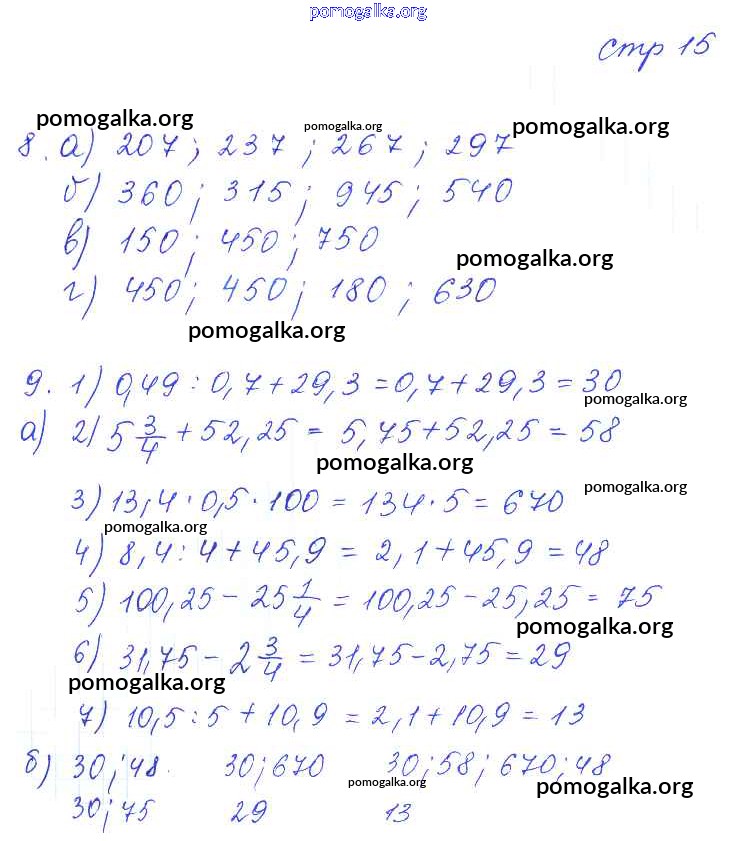 pomogalka.org
стр 15
pomogalka.org pomogalka.org pomogalka.org
8. а) 207; 237; 267; 297
б) 360; 315; 945; 540
в) 150; 450; 750
pomogalka.org
г) 450; 450; 180; 630
pomogalka.org
9. 1) 0,49 : 0,7 + 29,3 = 0,7 + 29,3 = 30
pomogalka.org
а) 2) 5 3/4 + 52,25 = 5,75 + 52,25 = 58
pomogalka.org
pomogalka.org
3) 13,4 · 0,5 · 100 = 134 · 5 = 670
pomogalka.org
4) 8,4 : 4 + 45,9 = 2,1 + 45,9 = 48
5) 100,25 - 25 1/4 = 100,25 - 25,25 = 75
pomogalka.org
6) 31,75 - 2 3/4 = 31,75 - 2,75 = 29
pomogalka.org
7) 10,5 : 5 + 10,9 = 2,1 + 10,9 = 13
б) 30; 48. 30; 670 30; 58; 670; 48
pomogalka.org pomogalka.org
30; 75 29 13